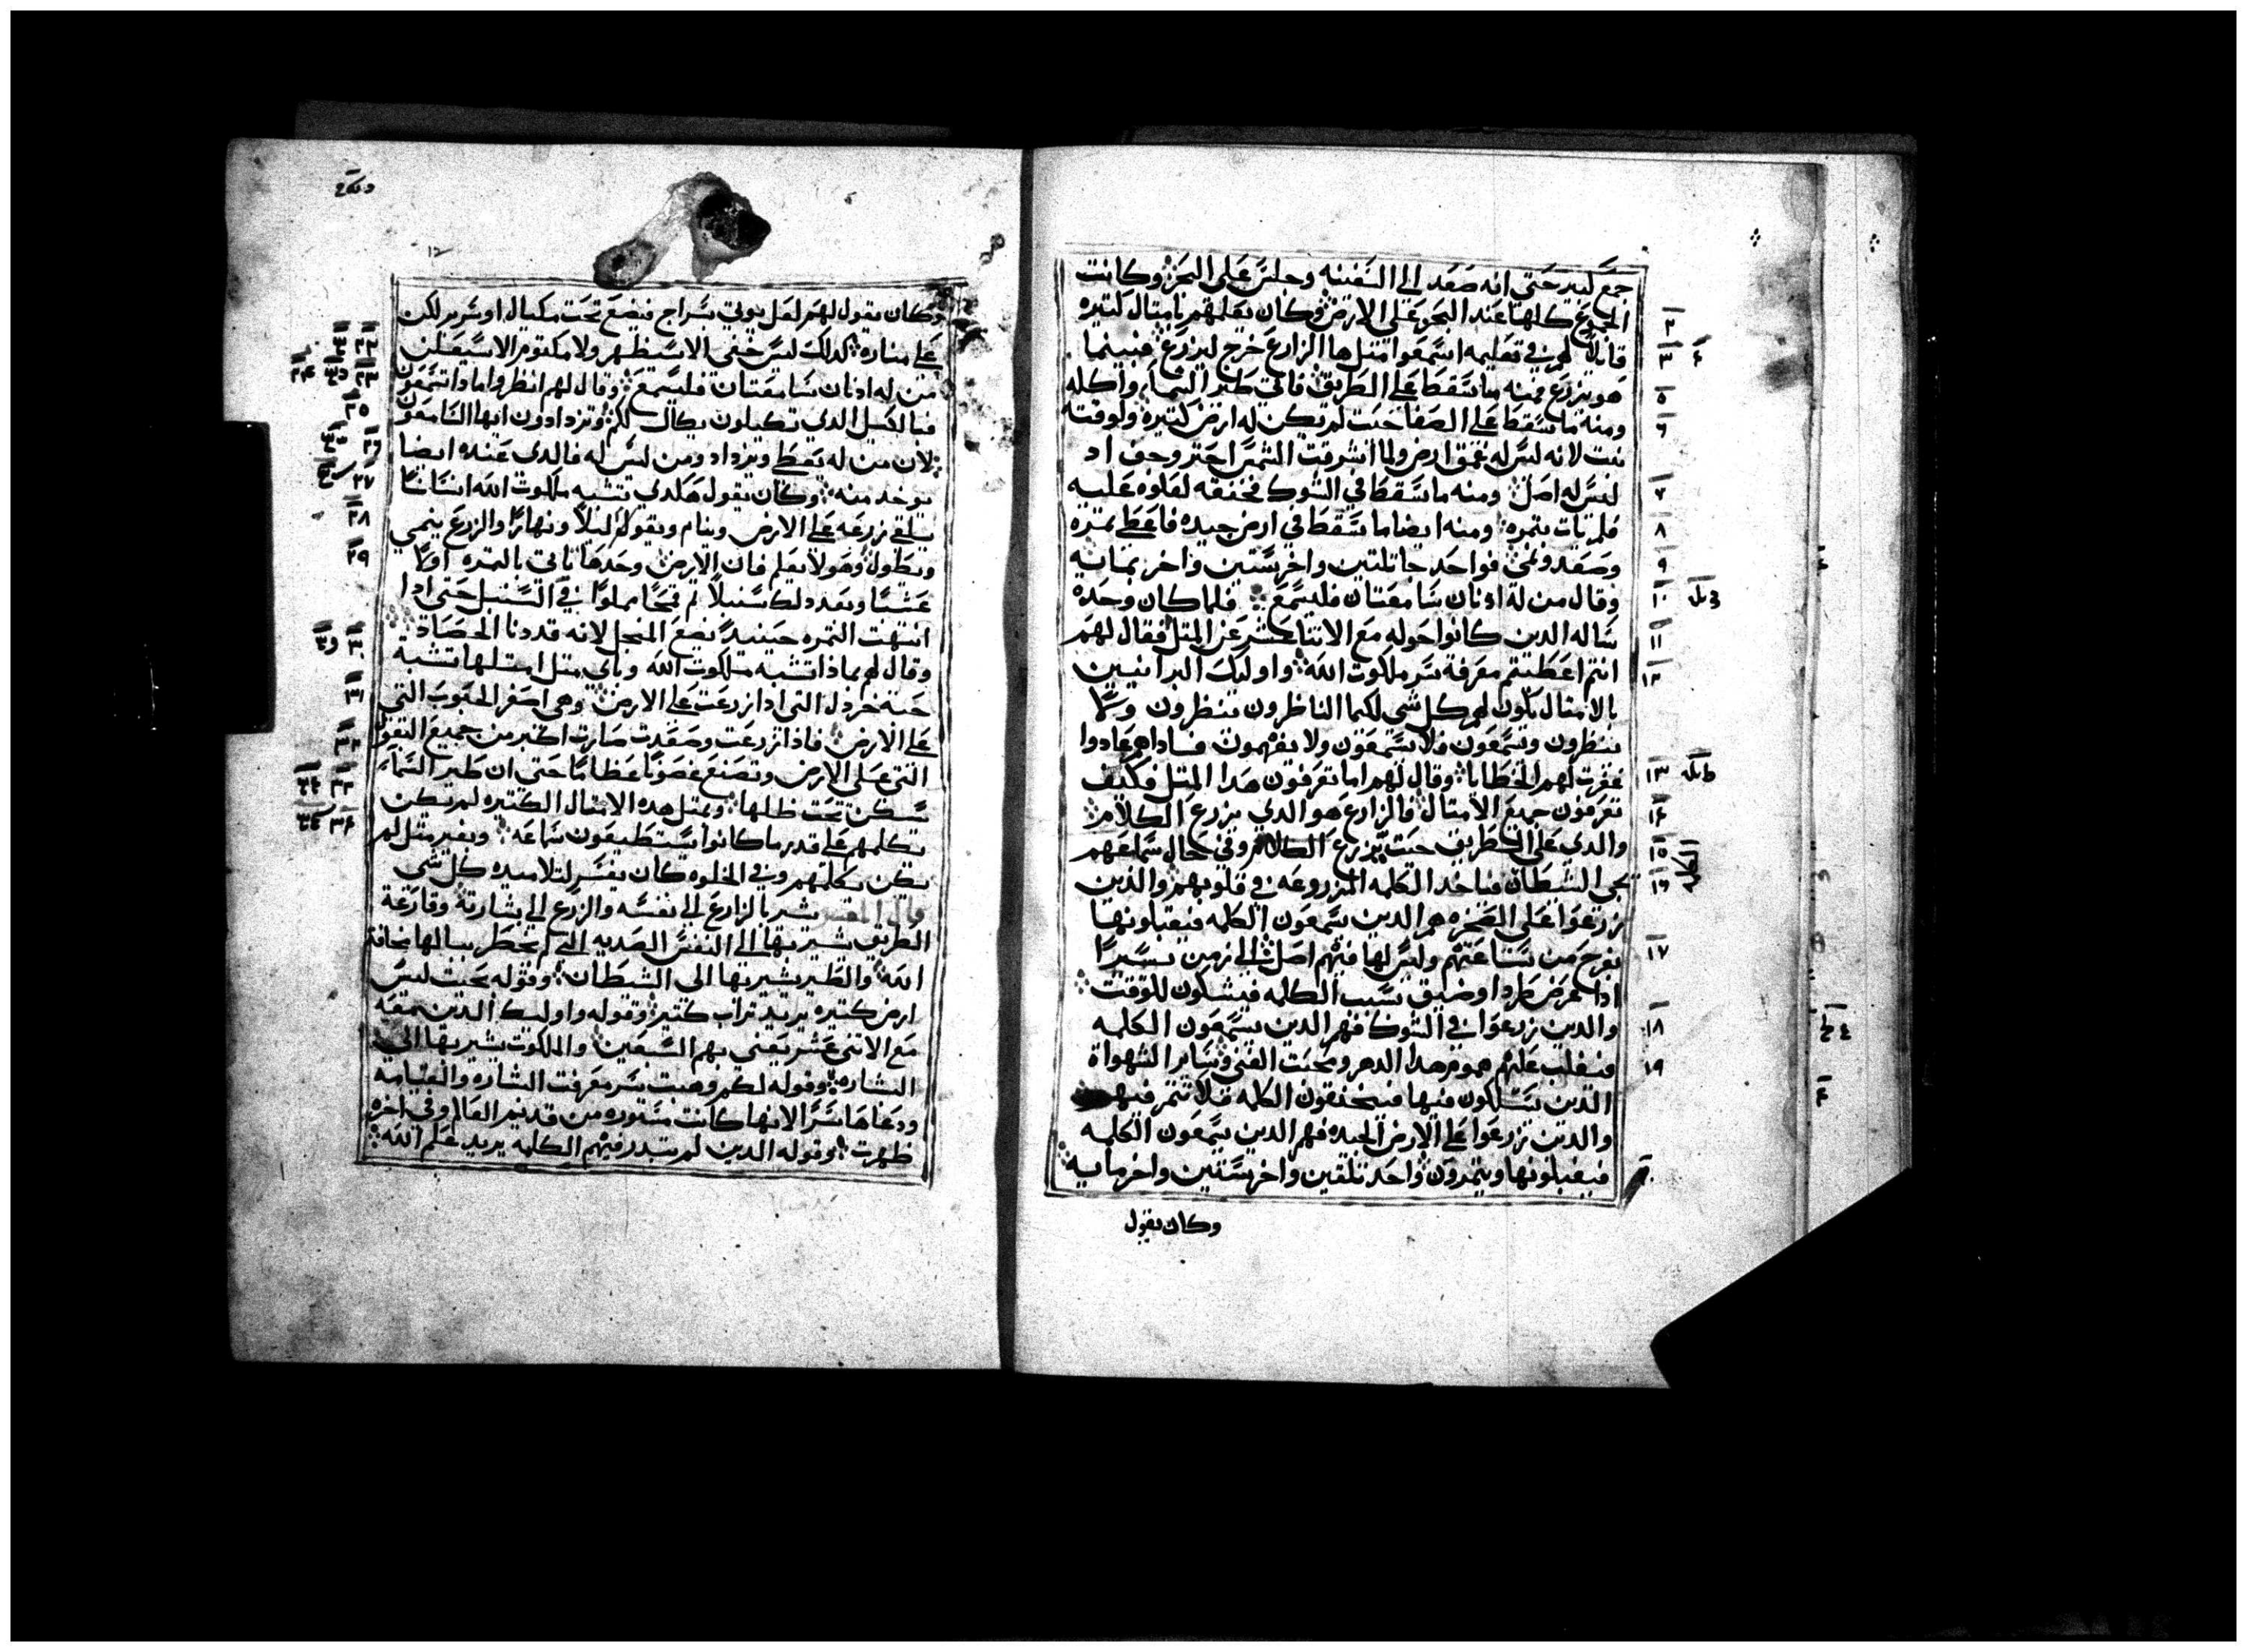 جمع لبيد حتي انه صعد الي السفينه وجلس علي البحر وكانت
الجموع كلها عند البحر علي الارض وكان يعلمهم بامثال كتيره
قايلاً لهم في تعليمه اسمعوا مثل ها الزارع خرج ليزرع فبينما
هو يزرع فمنه ما سقط علي الطريق فاتي طير السما واكله
ومنه ما سقط علي الصفا حيت لم تكن له ارض كتيره ولوقته
نبت لانه ليس له عمق ارض ولما اشرقت الشمس احترو جف اد
ليس له اصل ومنه ما سقط في الشوك فخنقه لعلوه عليه
فلم يات بتمره ومنه ايضا ما سقط في ارض جيده فاعطي تمره
وصعد ونمي فواحد جا تلتين واخر ستين واخر بمايه
وقال من له اذنان سامعتان فليسمع فلما كان وحده
ساله الدين كانوا حوله مع الاتنا عشر عن المتل فقال لهم
انتم اعطيتم معرفة سر ملكوت الله واوليك البرانيين
بالامتال يكون لهم كل شي لكيما الناظرون ينظرون ولا
ينظرون ويسمعون فلا يسمعون ولا يفهمون فاداهم عادوا
غفرت لهم الخطايا وقال لهم اما تعرفون هدا المتل فكيف
تعرفون جميع الامتال فالزارع هو الدي يزرع الكلام
والدي علي الطريق حيت يزرع الكلام وفي حال سماعهم
يجي الشيطان فياخد الكلمه المزروعه في قلوبهم والدين
زرعوا علي الصخره هم الدين يسمعون الكلمه فيقبلونها
بفرح من ساعتهم وليس لها فيهم اصل الي زمن يسيرًا
ادا عرض طرد او ضيق بسبب الكلمه فيشكون للوقت
والدين زرعوا في الشوك فهم الدين يسمعون الكلمه
فيغلب عليهم هموم هدا الدهر ومحبت الغني وساير الشهواة
الدين يسلكون فيها فيختنقون الكلمه فلا تتمر فيهم
والدين زرعوا علي الارض الجيده فهم الدين يسمعون الكلمه
فيقبلونها ويتمرون واحد تلتين واخر ستين واخر مايه
وكان يقول
وكان يقول لهم لعل يوتي بسراج فيضع تحت مكيال او سرير لكن
علي مناره كدلك ليس خفي الا سيظهر ولا مكتوم الا سيعلن
من له ادنان سامعتان فليسمع وقال لهم انظروا مادا تسمعون
فبالكيل الدي تكيلون يكال لكم وتزدادون ايها السامعون
لان من له يعطي ويزداد ومن ليس له فالدي عنده ايضا
يوخد منه وكان يقول هكدي تشبه ملكوت الله انسانًا
يلقي زرعه علي الارض وينام ويقوم ليلاً ونهارًا والزرع ينمي
ويطول وهو لا يعلم فان الارض وحدها تاتي بالتمره اولاً
عشبًا وبعد دلك سنبلاً تم قمحًا مملوًا في السنبل حتي ادا
انتهت التمره حينيدٍ يضع المنجل لانه قد دنا الحصاد
وقال لهم بمادا تشبه ملكوت الله وباي متل امتلها تشبه
حبة خردل التي ادا زرعت علي الارض وهي اصغر الحبوب التي
علي الارض فادا زرعت وصعدت صارت اكبر من جميع البقول
التي علي الارض وتصنع غصونًا عظامًا حتي ان طير السماء
يسكن تحت ظلها وبمتل هده الامتال الكتيره لم يكن
يكلمهم علي قدر ما كانوا يستطيعون سماعه وبغير متل لم
يكن يكلمهم وفي الخلوه كان يفسر لتلاميده كل شي
قال المفسر يشير بالزارع الي نفسه والزرع الي بشارته وقارعة
الطريق يشير بها الي النفس الصديه التي لم يخطر ببالها مخافة
الله والطير يشير بها الي الشيطان وقوله بحيت ليس
ارض كتيره يريد تراب كتير وقوله واوليك الدين معه
مع الاتني عشر يعني بهم السبعين والملكوت يشير بها الي
البشاره وقوله لكم وهبت سر معرفت البشاره والقيامه
ودعاها سرًا لانها كانت مستوره من قديم العالم وفي اخره
ظهرت وقوله الدين لم يتبدر فيهم الكلمه يريد علم الله